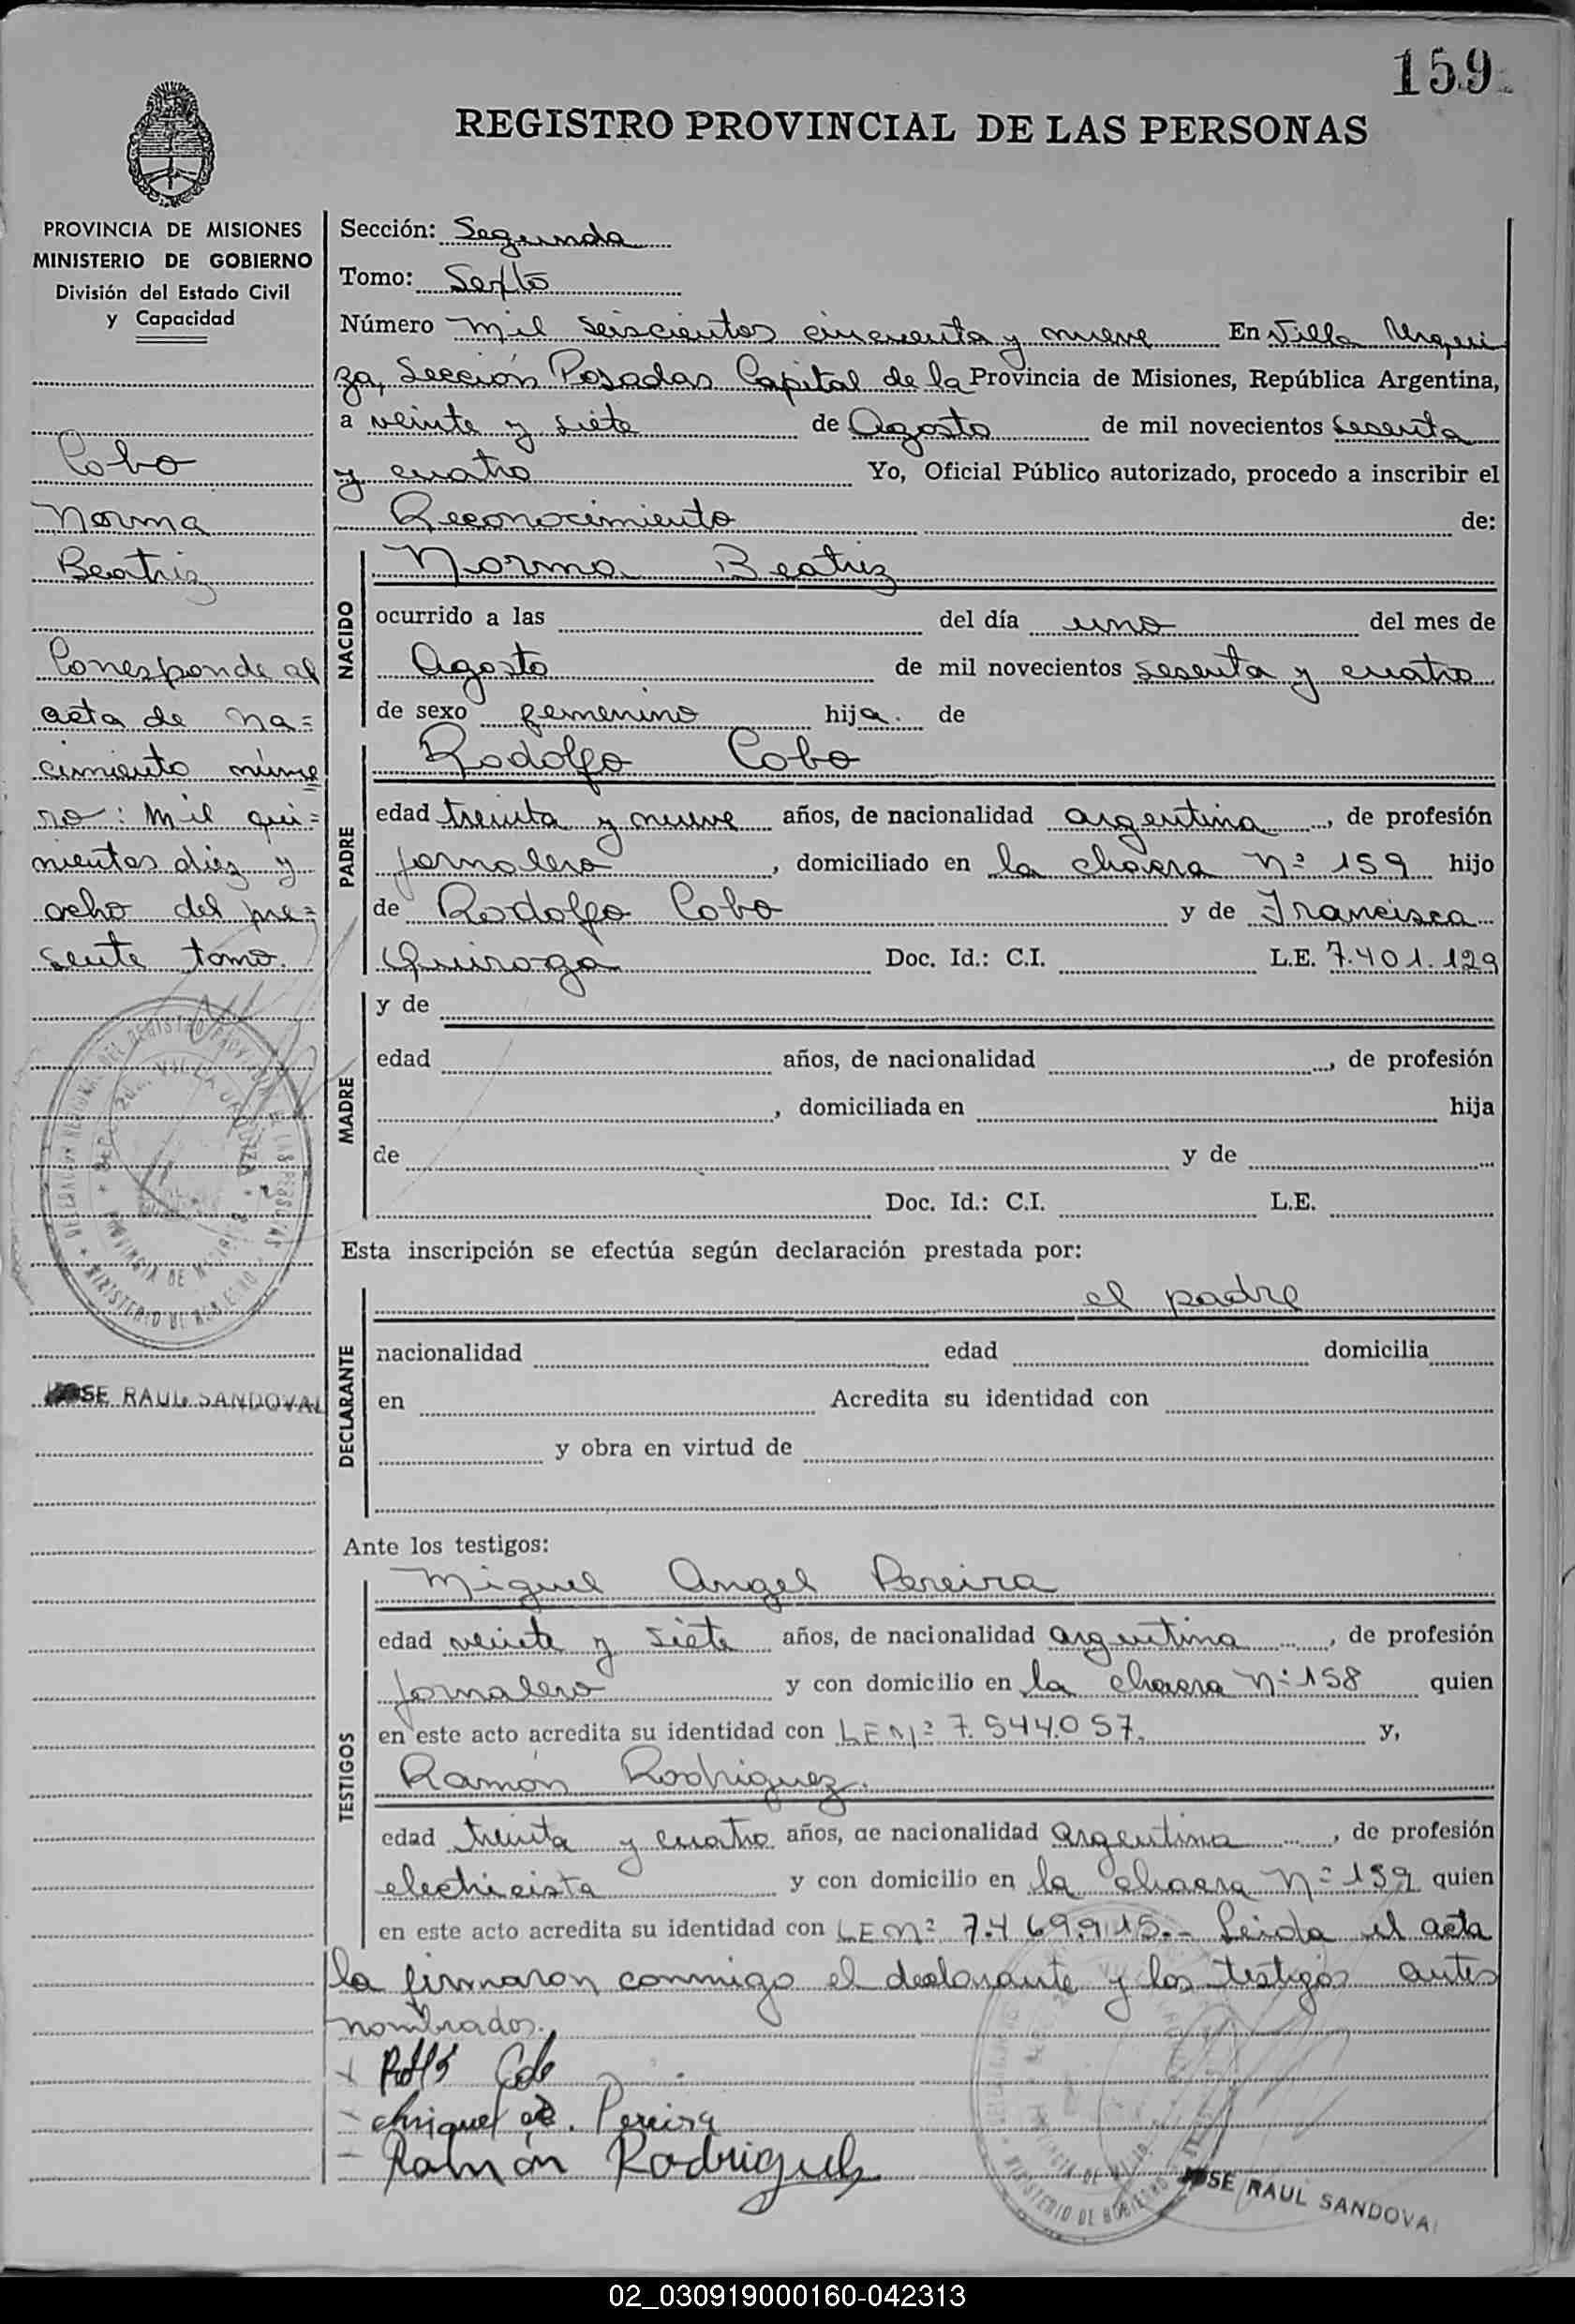 159
REGISTRO PROVINCIAL DE LAS PERSONAS
PROVINCIA DE MISIONES
MINISTERIO DE GOBIERNO
División del Estado Civil
y Capacidad
Cobo
Norma
Beatriz
Corresponde al
acta de na=
cimiento núme
ro: mil qui=
nientos diez y
ocho del pre=
sente tomo.
JOSE RAUL SANDOVAL
Sección: Segunda
Tomo: Sexto
Número mil seiscientos cincuenta y nueve En Villa Urqui
za, Sección Posadas Capital de la Provincia de Misiones, República Argentina,
a veinte y siete de Agosto de mil novecientos sesenta
y cuatro Yo, Oficial Público autorizado, procedo a inscribir el
Reconocimiento de:
NACIDO
Norma Beatriz
ocurrido a las del día uno del mes de
Agosto de mil novecientos sesenta y cuatro
de sexo femenino hija. de
PADRE
Rodolfo Cobo
edad treinta y nueve años, de nacionalidad argentina, de profesión
jornalero, domiciliado en la chacra Nº 159 hijo
de Rodolfo Cobo y de Francisca
Quiroga Doc. Id.: C.I. L.E. 7.401.129
MADRE
y de
edad años, de nacionalidad , de profesión
, domiciliada en hija
de y de
Doc. Id.: C.I. L.E.
Esta inscripción se efectúa según declaración prestada por:
DECLARANTE
el padre
nacionalidad edad domicilia
en Acredita su identidad con
y obra en virtud de
Ante los testigos:
TESTIGOS
Miguel Angel Pereira
edad veinte y siete años, de nacionalidad argentina, de profesión
jornalero y con domicilio en la chacra Nº 158 quien
en este acto acredita su identidad con LE Nº 7.544.057. y,
Ramón Rodriguez.
edad treinta y cuatro años, de nacionalidad argentina, de profesión
electricista y con domicilio en la chacra Nº 159 quien
en este acto acredita su identidad con LE Nº 7.469.915.- Leida el acta
la firmaron conmigo el declarante y los testigos antes
nombrados.
Pereira
Ramón Rodriguez
JOSE RAUL SANDOVAL
02_030919000160-042313